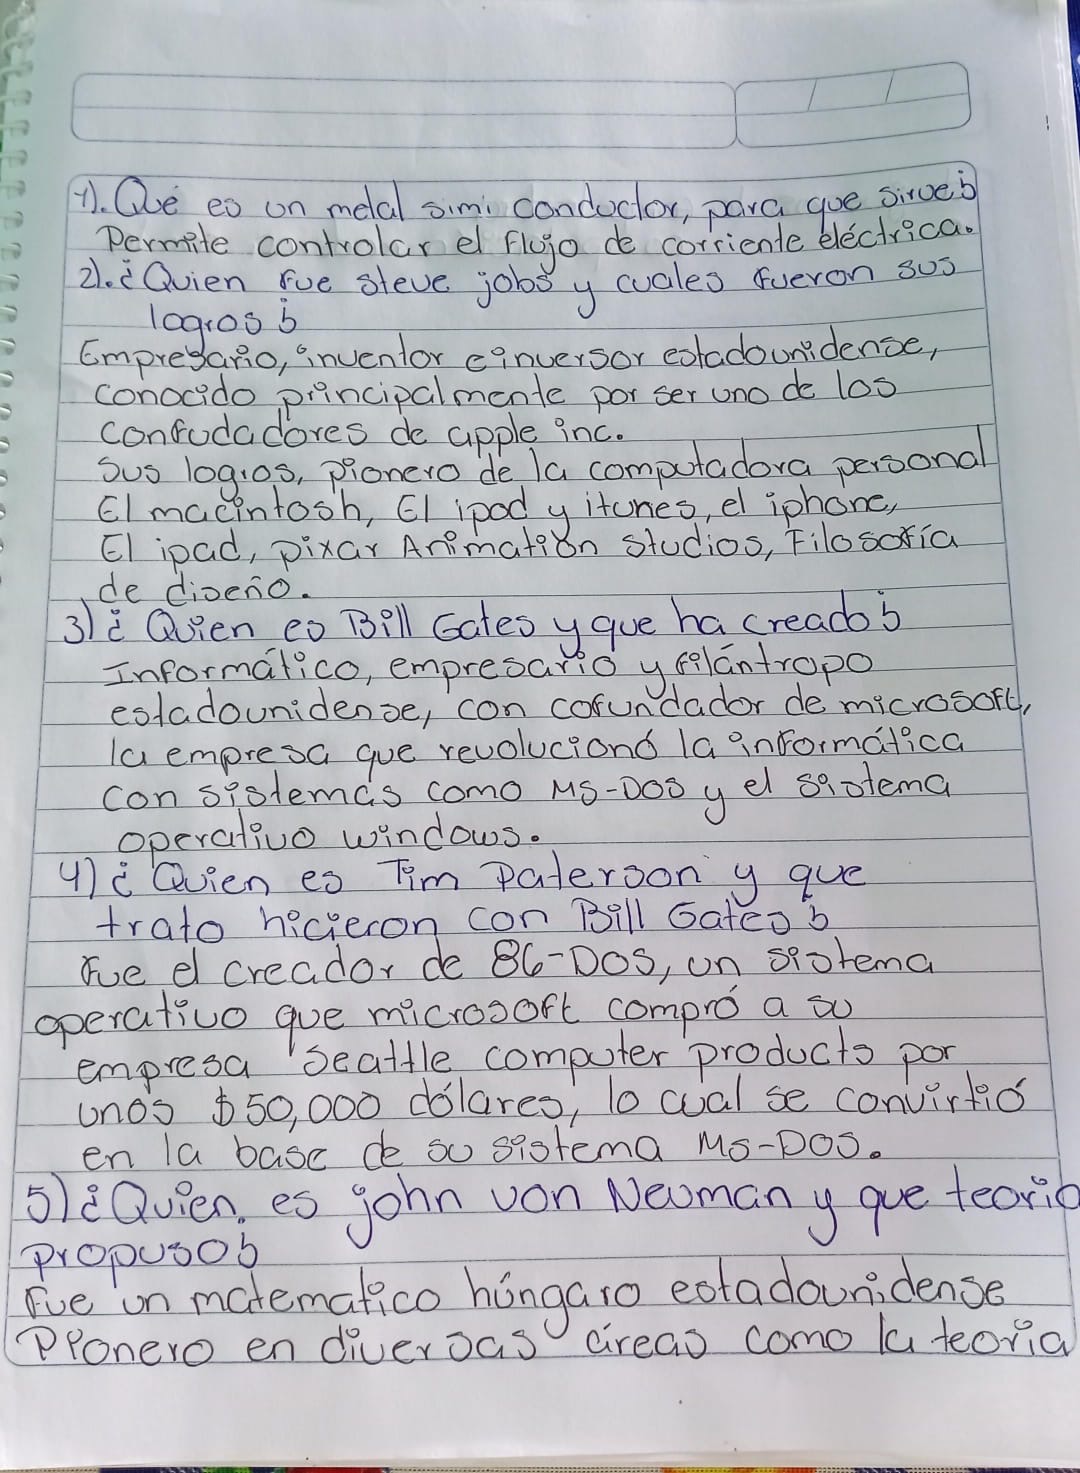 1). Qué es un metal simi conductor, para que sirve?
Permite controlar el flujo de corriente eléctrica.
2). ¿Quien fue steve jobs y cuales fueron sus
logros?
Empresario, inventor e inversor estadounidense,
conocido principalmente por ser uno de los
confudadores de apple inc.
Sus logros, pionero de la computadora personal
El macintosh, El ipod y itunes, el iphone,
El ipad, pixar Animation studios, Filosofía
de diseño.
3) ¿Quien es Bill Gates y que ha creado?
Informático, empresario y filántropo
estadounidense, con cofundador de microsoft,
la empresa que revolucionó la informática
con sistemas como MS-DOS y el sistema
operativo windows.
4) ¿Quien es Tim Paterson y que
trato hicieron con Bill Gates?
Fue el creador de 86-DOS, un sistema
operativo que microsoft compró a su
empresa Seattle computer products por
unos $50,000 dólares, lo cual se convirtió
en la base de su sistema MS-DOS.
5) ¿Quien es john von Neuman y que teoria
propuso?
Fue un matematico húngaro estadounidense
Pionero en diversas áreas como la teoria